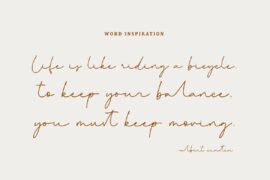 WORD INSPIRATION
Life is like riding a bicycle.
to keep your balance,
you must keep moving.
Albert einstein